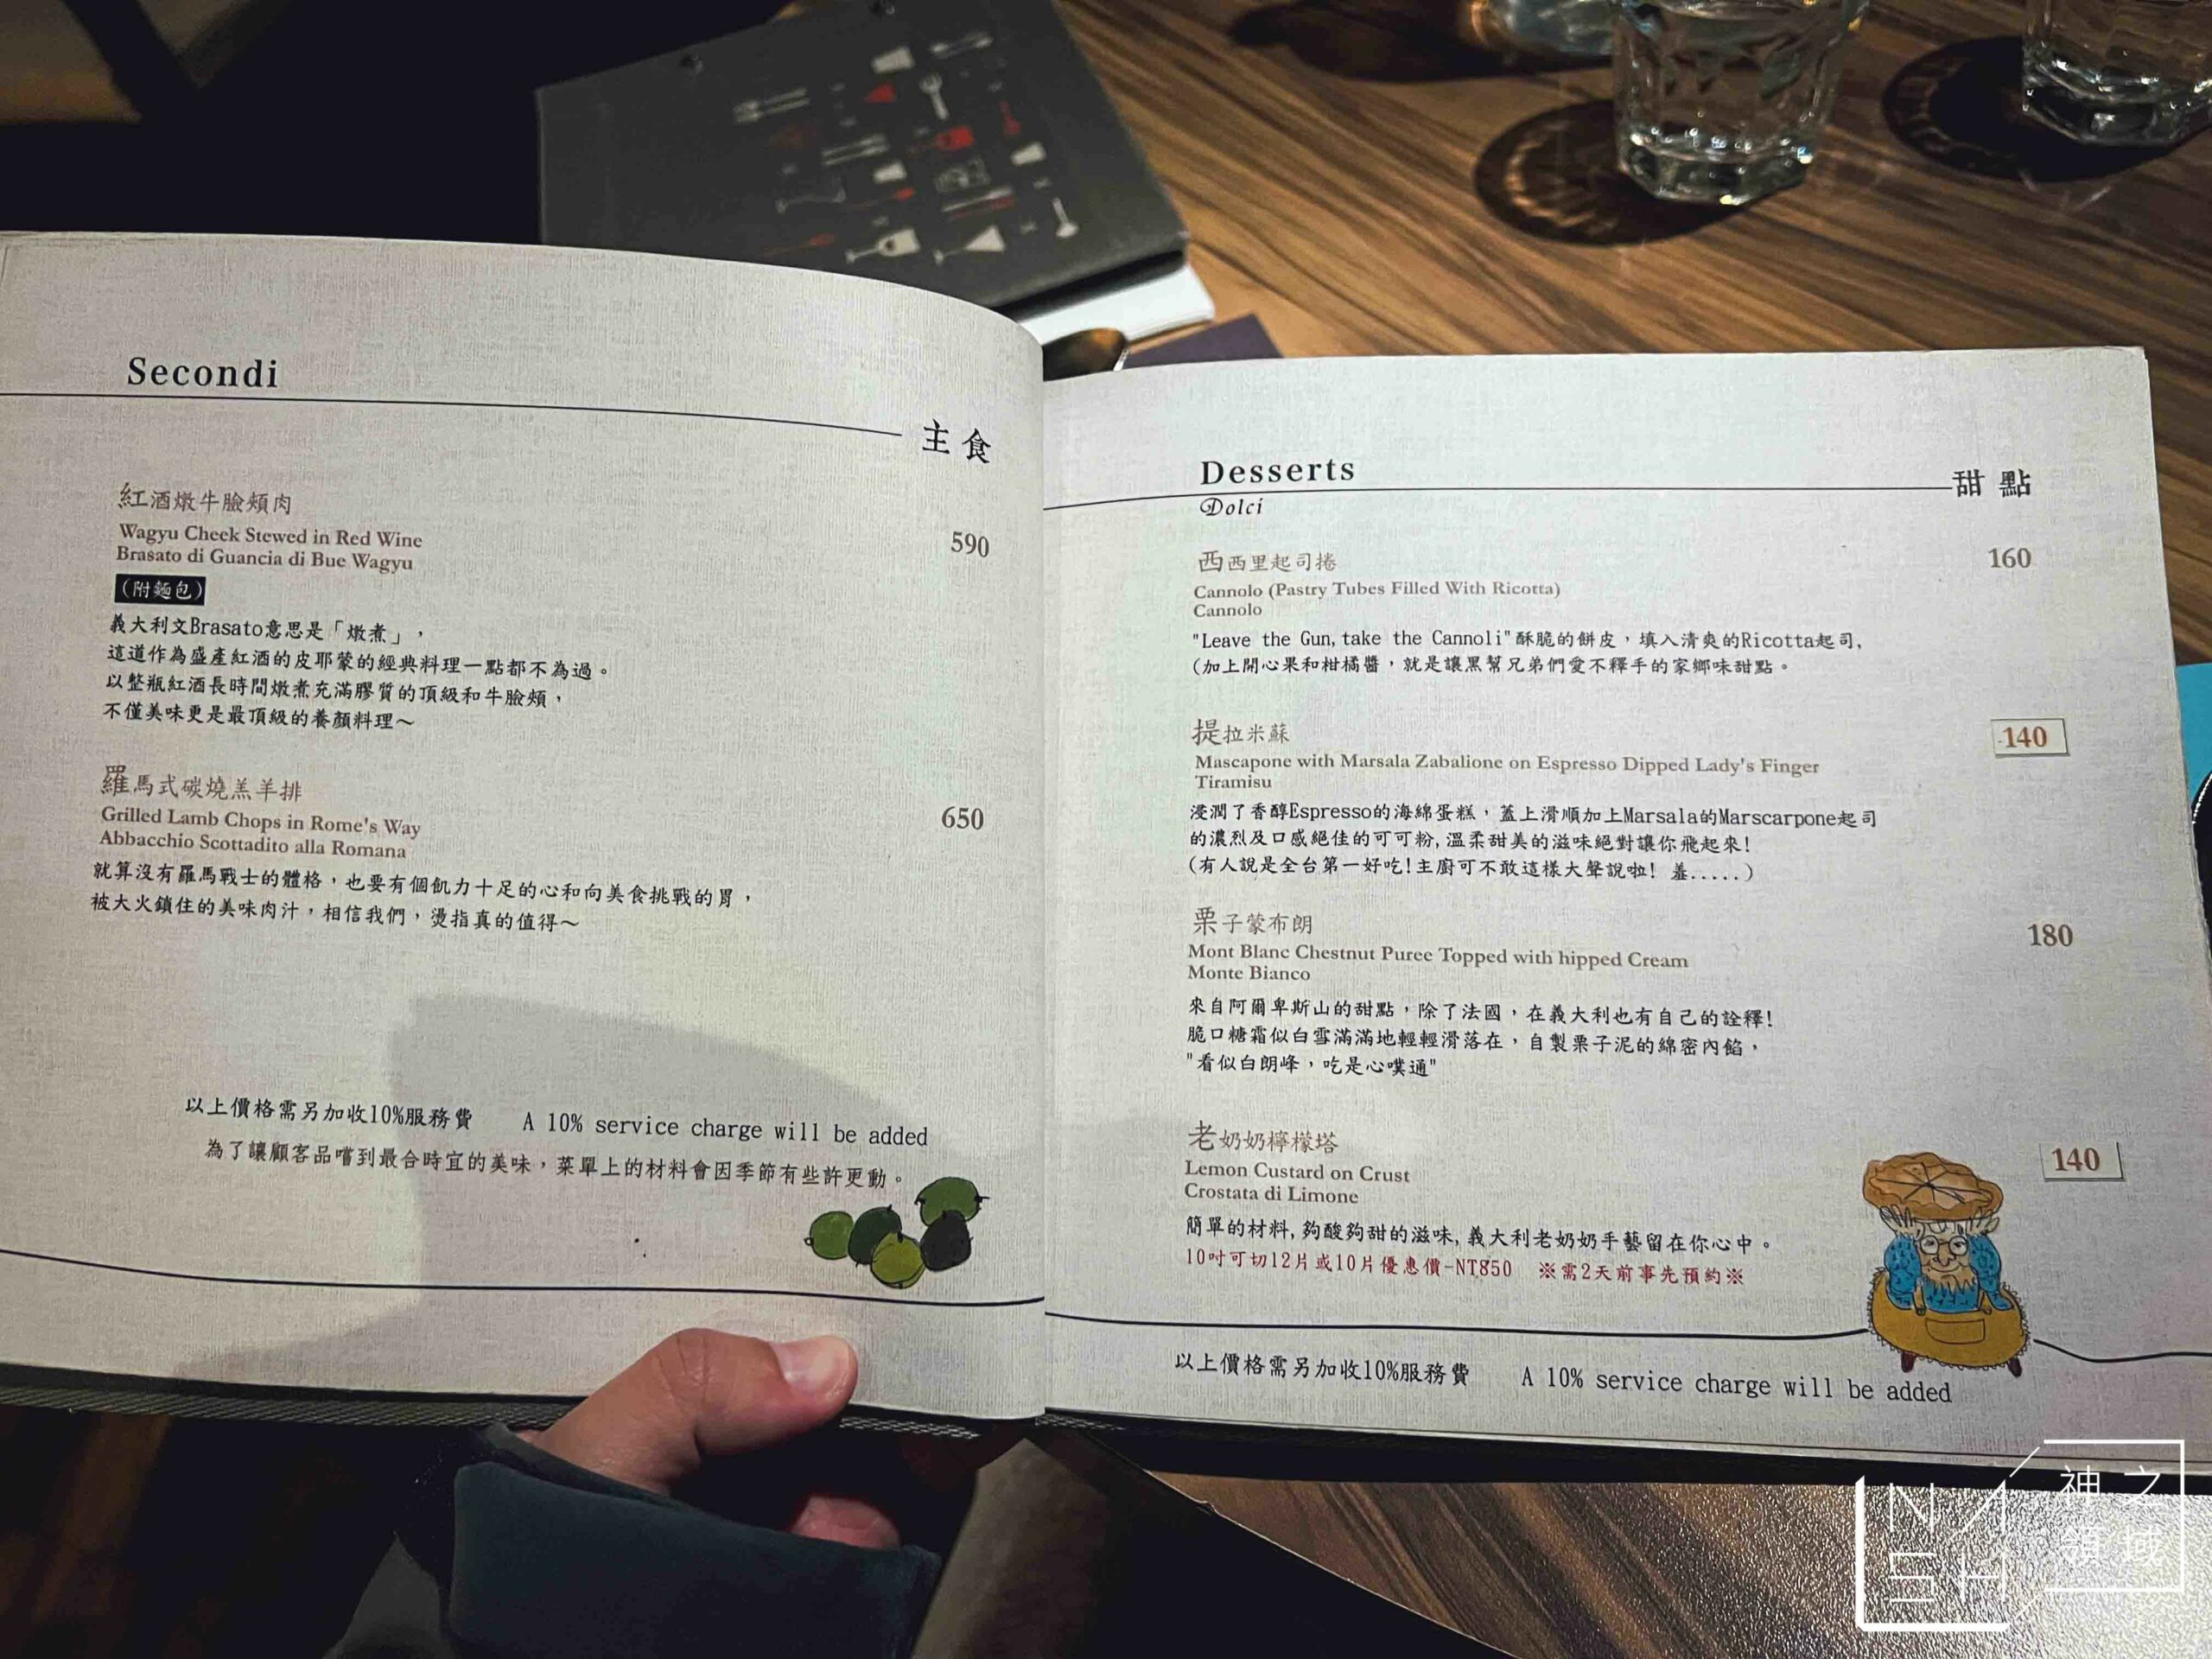 Secondi
主食
紅酒燉牛臉頰肉
Wagyu Cheek Stewed in Red Wine
590
Brasato di Guancia di Bue Wagyu
(附麵包)
義大利文Brasato意思是「燉煮」，
這道作為盛產紅酒的皮耶蒙的經典料理一點都不為過。
以整瓶紅酒長時間燉煮充滿膠質的頂級和牛臉頰，
不僅美味更是最頂級的養顏料理～
羅馬式碳燒羔羊排
Grilled Lamb Chops in Rome's Way
650
Abbacchio Scottadito alla Romana
就算沒有羅馬戰士的體格，也要有個飢力十足的心和向美食挑戰的胃，
被大火鎖住的美味肉汁，相信我們，燙指真的值得～
以上價格需另加收10%服務費 A 10% service charge will be added
為了讓顧客品嚐到最合時宜的美味，菜單上的材料會因季節有些許更動。
Desserts
甜點
Dolci
西西里起司捲
160
Cannolo (Pastry Tubes Filled With Ricotta)
Cannolo
"Leave the Gun, take the Cannoli"酥脆的餅皮，填入清爽的Ricotta起司,
(加上開心果和柑橘醬，就是讓黑幫兄弟們愛不釋手的家鄉味甜點。
提拉米蘇
140
Mascapone with Marsala Zabalione on Espresso Dipped Lady's Finger
Tiramisu
浸潤了香醇Espresso的海綿蛋糕，蓋上滑順加上Marsala的Marscarpone起司
的濃烈及口感絕佳的可可粉,溫柔甜美的滋味絕對讓你飛起來!
(有人說是全台第一好吃!主廚可不敢這樣大聲說啦! 羞.....)
栗子蒙布朗
180
Mont Blanc Chestnut Puree Topped with hipped Cream
Monte Bianco
來自阿爾卑斯山的甜點，除了法國，在義大利也有自己的詮釋!
脆口糖霜似白雪滿滿地輕輕滑落在，自製栗子泥的綿密內餡，
"看似白朗峰，吃是心噗通"
老奶奶檸檬塔
140
Lemon Custard on Crust
Crostata di Limone
簡單的材料,夠酸夠甜的滋味,義大利老奶奶手藝留在你心中。
10吋可切12片或10片優惠價-NT850 ※需2天前事先預約※
以上價格需另加收10%服務費 A 10% service charge will be added
NASH
神之
領域